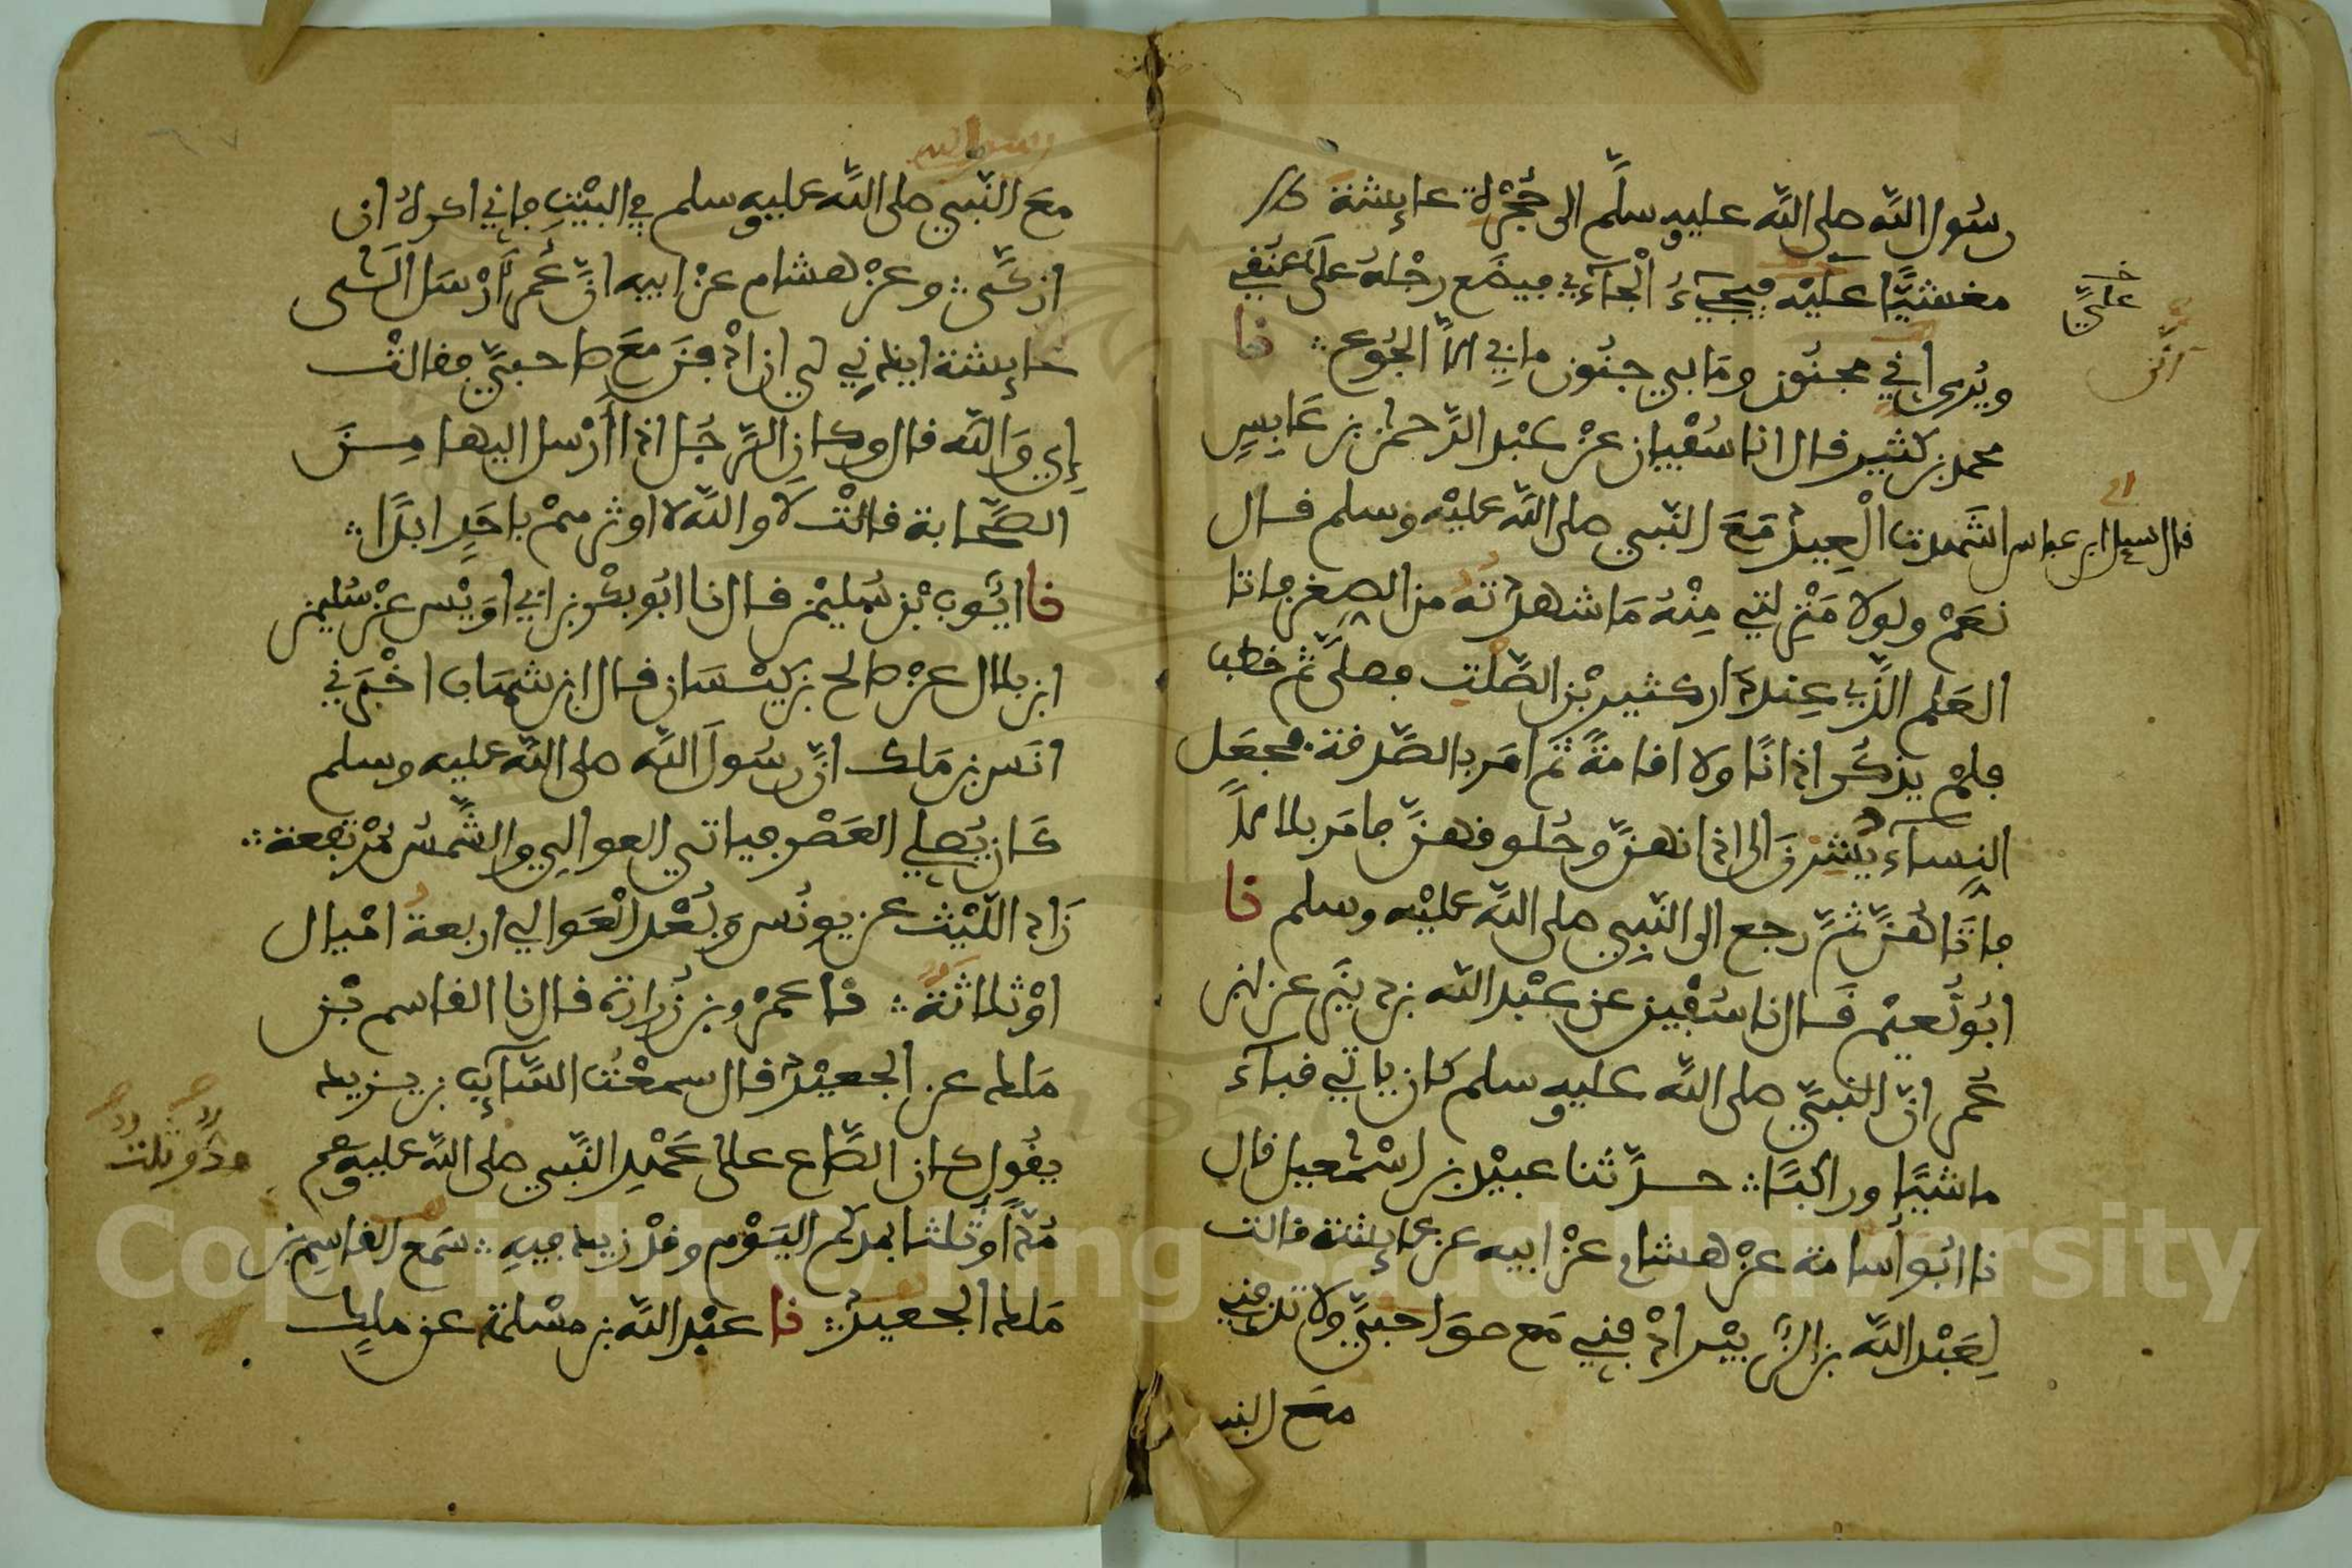 رسُول الله صلى الله عليه وسلم الى حُجْرة عايشة
مغشيًّا عليْه فيجيءُ الْجاءِي فيضَع رجْلهُ على عنُقي
ويُرى اني مجنُون ومَا بي جنُون ما بي الاَّ الجُوع نا
محمد بن كثير قال انا سُفْيان عنْ عبْد الرَّحمن بن عَابِسٍ
قال سيل ابن عباس اشَهدت الْعِيدَ مَعَ النّبي صلى الله عليْه وسلم قال
نعَمْ ولولا مَنْزِلتي مِنْهُ مَا شهدْتهُ من الصِغر فاتا
العَلم الذِّي عِندَ دار كثير بْن الصَّلْت فصلىَّ ثمَّ خطب
فلمْ يذكُر اذانًا ولا اقامةً ثمَّ امَر بالصَّدقة فجعَل
النِساءُ يُشِرْنَ الى اذانهنَّ وحُلوقهنَّ فامَر بلالاً
فاتَاهُنَّ ثمَّ رجع الى النّبي صلى الله عليْه وسلم نا
ابُو نُعيْم قَال نا سُفْين عن عبْد الله بن دينَر عن ابن
عُمر انَّ النبيَّ صلى الله عليه وسلم كان ياتي قباء
ماشيًا وراكبًا حدَّثنا عبيْد بن اسْمعيل قال
نا ابُو أُسامة عنْ هشام عنْ ابيه عن عايشة قالت
لِعَبْد الله بن الزُّبيْر ادْفِني مَع صوَاحبيَّ ولا تدْفِني
مَع النبي
خ
عليَّ
اني
معَ النّبي صلى الله عليه وسلم في البيْت فاني اكرهُ ان
ازكَّى وعنْ هشام عنْ ابيه انَّ عُمرَ أرْسَل الَى
عايشة ايذني لي ان ادْفنَ معَ صاحبيَّ فقالتْ
إي وَالله قال وكان الرَّجُل اذا أرْسل اليها مِنَ
الصَّحابة قالتْ لاَ والله لا اوثرهمْ باحَدٍ ابدًا
نا ايُّوب بْن سُليمْن قال نا ابُو بكْر بن ابي اوَيْس عنْ سُليمْن
ابن بلال عنْ صالح بن كيْسَان قال ابن شهَاب اخْبَرني
انَس بن مَلك انَّ رسُولَ الله صلى الله عليه وسلم
كَان يُصلي العَصْر فياتي العوالِي والشَّمسُ مُرْتفعة
زَاد اللّيْث عن يونُس وَبُعْد الْعَوالي اربعةُ امْيال
اوْ ثلاثةٌ نا عمْرو بن زُرارة قال نا القاسم بْن
مَلك عن الجعيْد قال سمعْتُ السَّايبَ بن يزيد
يقُول كان الصَّاع على عَهْدِ النَّبي صلى الله عليه وسلم
مُدًّا وثُلثا بمدكم اليَوْم وقدْ زيد فيهِ سَمع القاسِم بن
مَلك الجعيدَ نا عبْد الله بن مسْلمة عن ملكٍ
مدٌّ وثلث